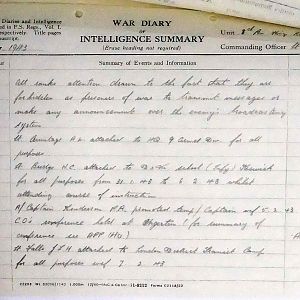 Diaries and Intelligence
in F.S. Regs., Vol. I.
respectively. Title pages
manuscript.
WAR DIARY
OF
INTELLIGENCE SUMMARY
(Erase heading not required)
Unit
Commanding Officer
1943
Summary of Events and Information
All ranks attention drawn to the fact that they are
forbidden as prisoner of war to transmit messages or
make any announcement over the enemy's broadcasting
system
Lt. Armitage attached to HQ 9 Armd Div. for all
purposes
H.C. attached to school Keswick
for all purposes from 31. 1. 43 to 6. 2. 43 whilst
attending course of instruction
A/Captain Henderson promoted Temp/Captain wef 5. 2. 43
CO's conference held at (for summary of
conference see APP
Lt attached to London District Transit Camp
for all purposes wef 7. 2. 43